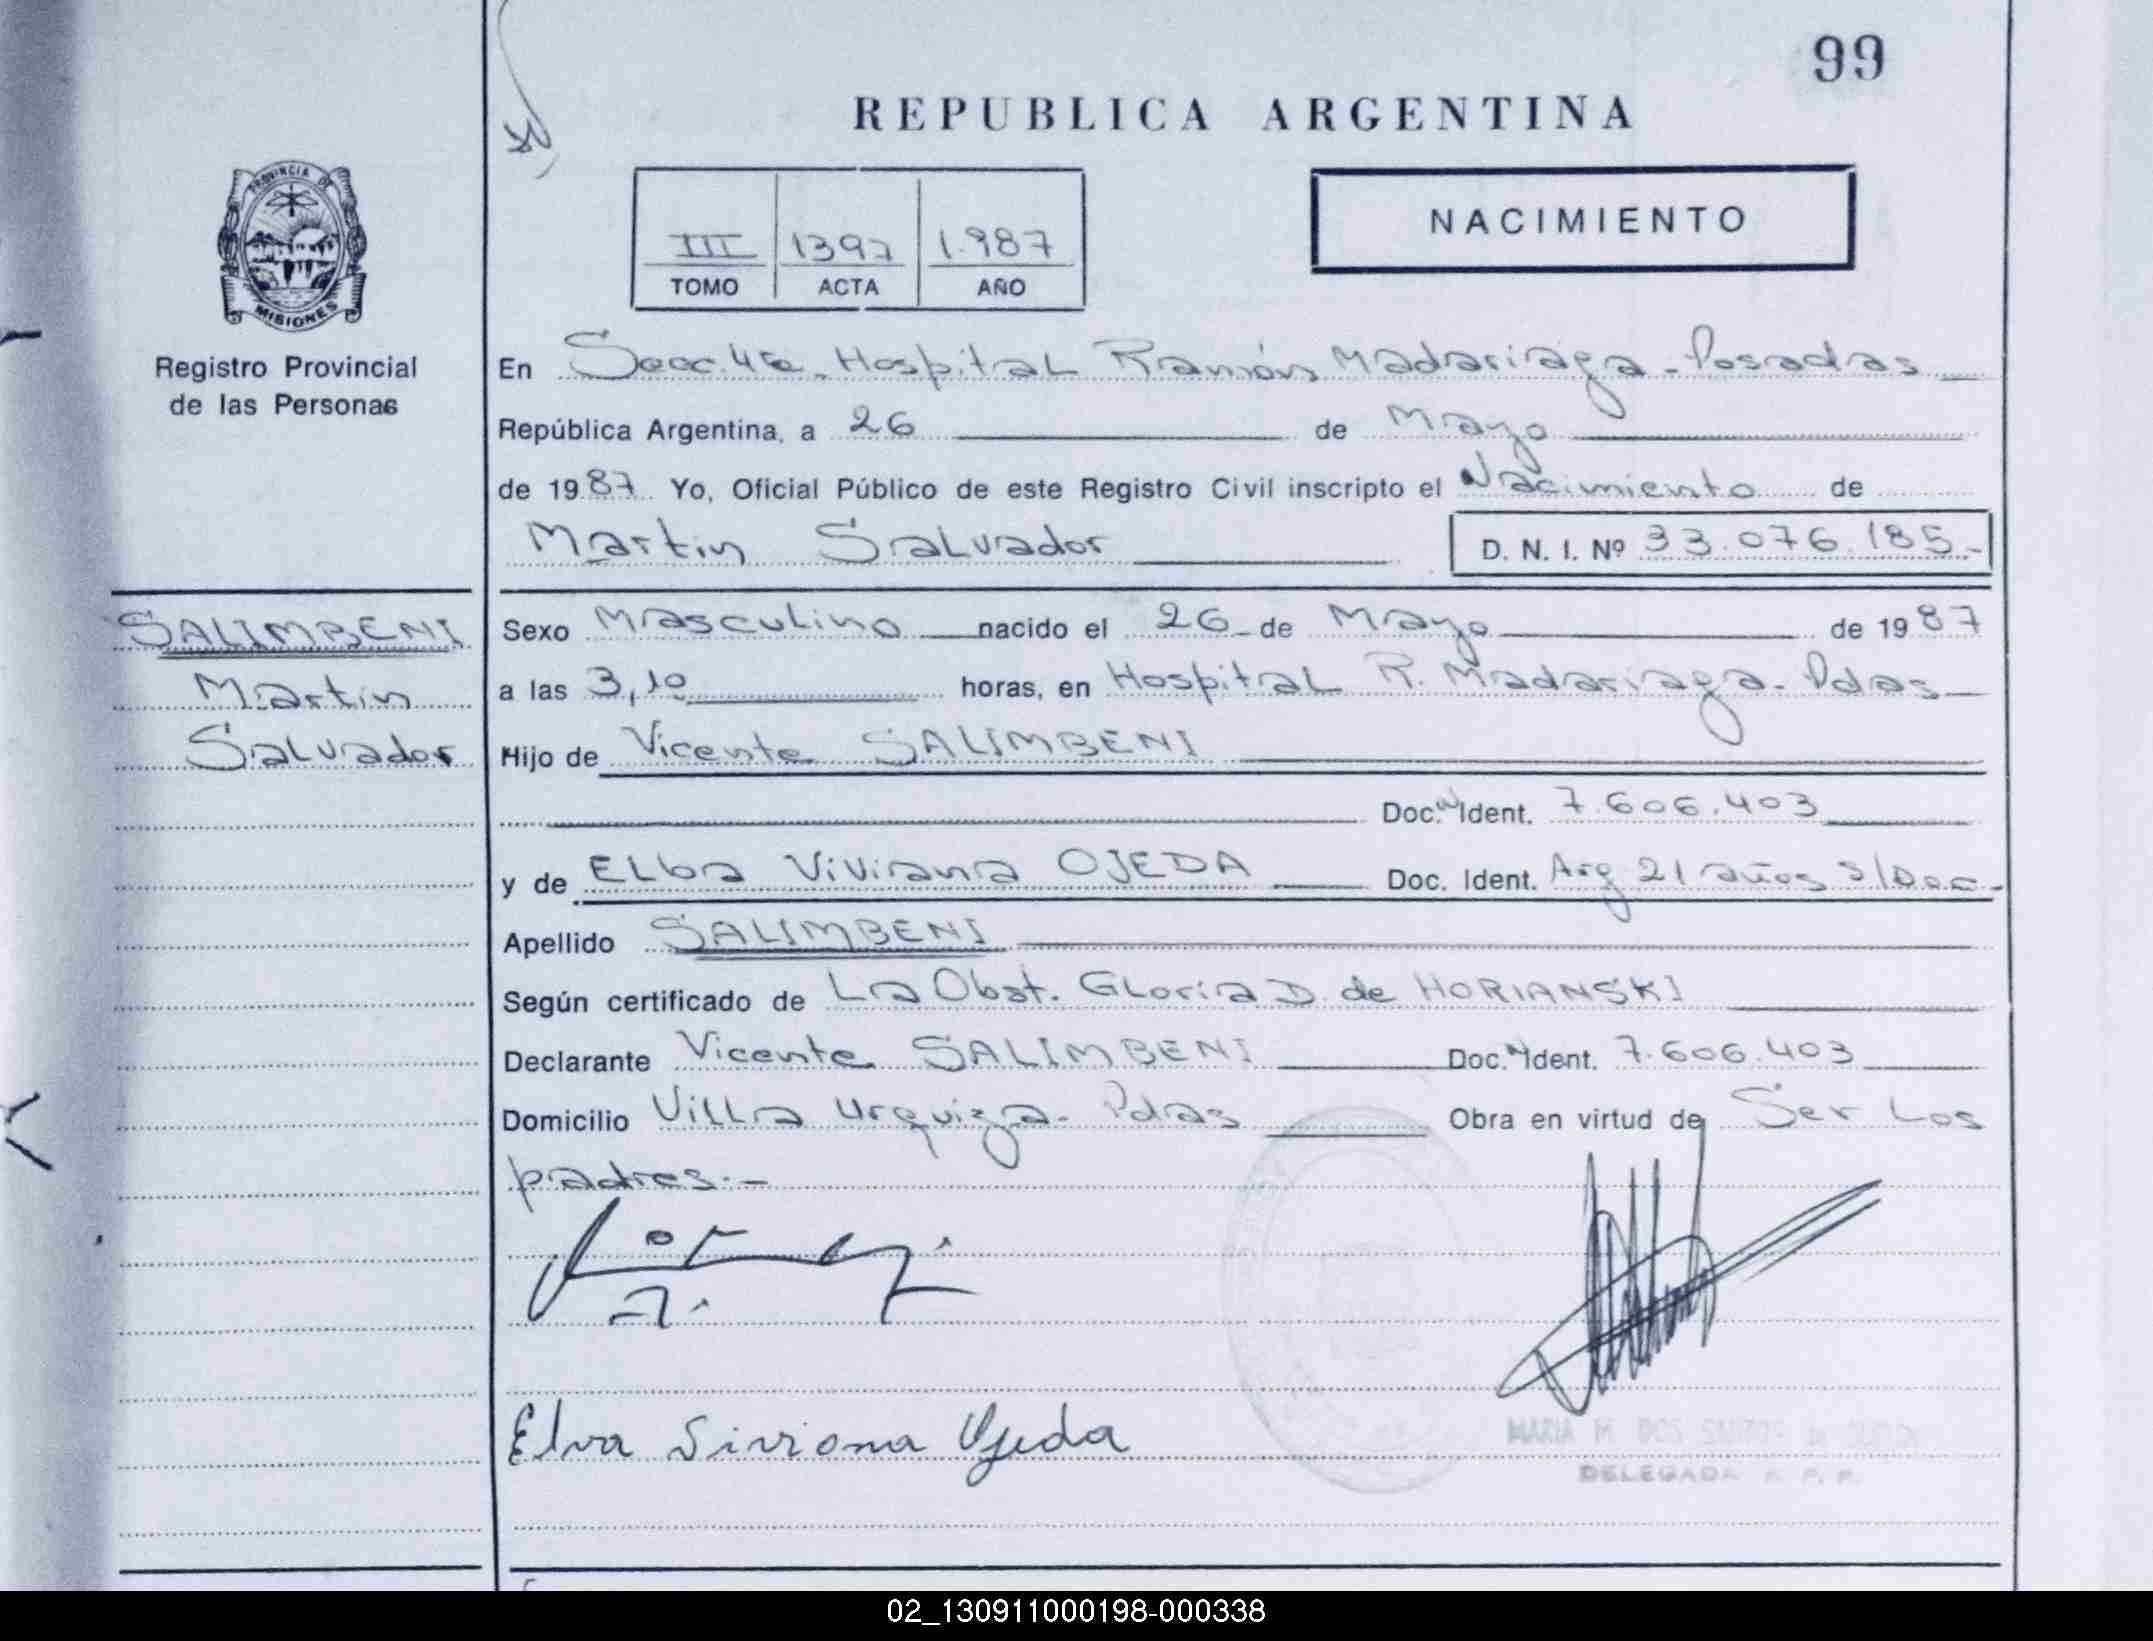 99
REPUBLICA ARGENTINA
PROVINCIA DE
MISIONES
Registro Provincial
de las Personas
NACIMIENTO
III 1397 1.987
TOMO ACTA AÑO
En Secc. 4ta. Hospital Ramón Madariaga - Posadas
República Argentina, a 26 de Mayo
de 1987 Yo, Oficial Público de este Registro Civil inscripto el Nacimiento de
Martin Salvador D. N. I. Nº 33.076.185.-
SALIMBENI
Martin
Salvador
Sexo Masculino nacido el 26 de Mayo de 1987
a las 3,10 horas, en Hospital R. Madariaga - Pdas
Hijo de Vicente SALIMBENI
Doc. Ident. 7.606.403
y de ELba Viviana OJEDA Doc. Ident. Arg 21 años S/Doc.-
Apellido SALIMBENI
Según certificado de La Obst. Gloria D. de HORIANSKI
Declarante Vicente SALIMBENI Doc. Ident. 7.606.403
Domicilio Villa Urquiza - Pdas Obra en virtud de Ser Los
padres.-
Elva Siviona Ojeda
MARIA M. DOS SANTOS de
DELEGADA R. P. P.
02_130911000198-000338